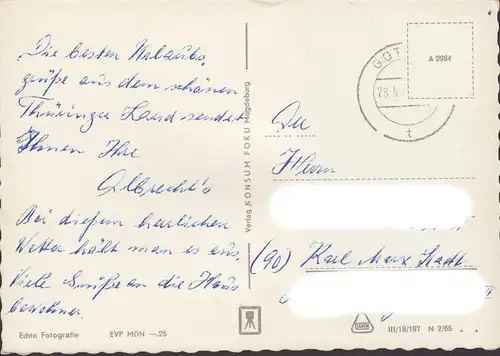 Die besten Urlaubs-
grüße aus dem schönen
Thüringer Land sendet
Ihnen Ihre
Albrecht's
Bei diesem herrlichen
Wetter hält man es aus.
Viele Grüße an die Haus
bewohner.
Echte Fotografie EVP MDN —.25
Verlag KONSUM FOKU Magdeburg
A 2984
GOT
28.
t
Herrn
(90) Karl Marx Stadt
III/18/197 N 2/65